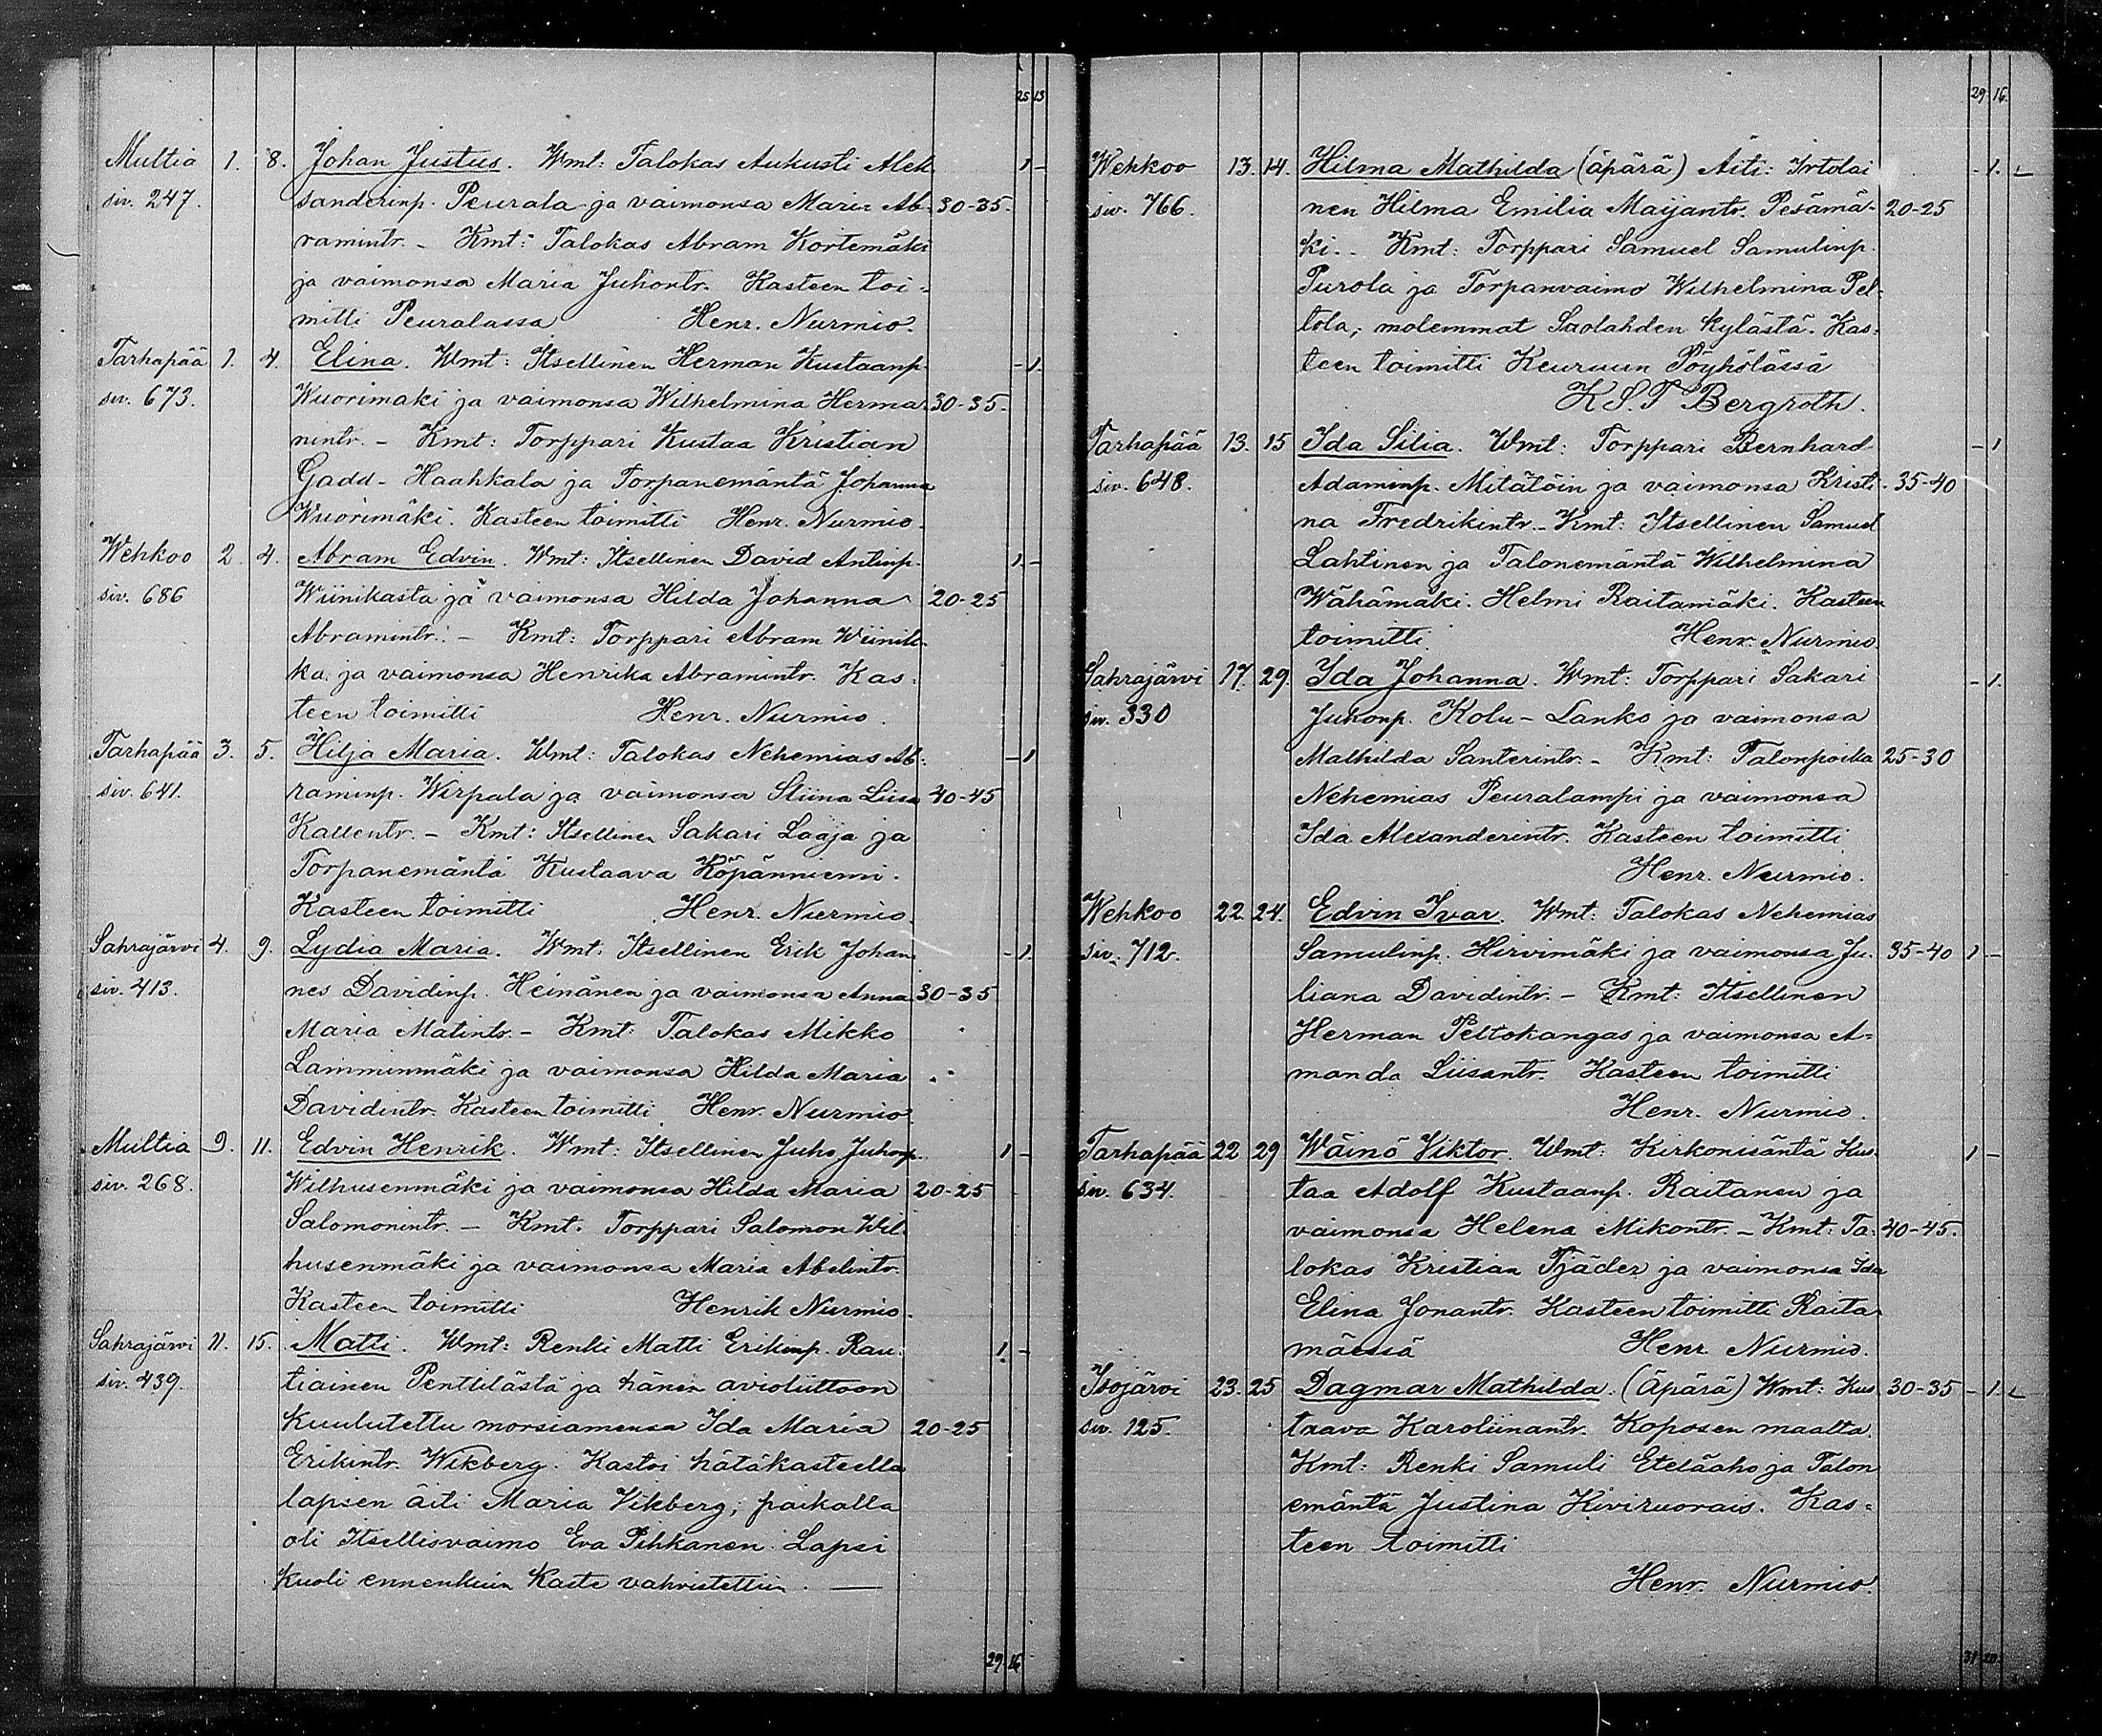 25 13
Multia 1. 8. Johan Justus. Wmt: Talokas Aukusti Alek
siv. 247. sanderinp. Peurala ja vaimonsa Maria Ab- 30-35.
ramintr. - Kmt: Talokas Abram Kortemäki
ja vaimonsa Maria Juhontr. Kasteen toi-
mitti Peuralassa Henr. Nurmio.
Tarhapää 1. 4. Elina. Wmt: Itsellinen Herman Kustaanp. - 1.
siv. 673. Wuorimäki ja vaimonsa Wilhelmina Herma- 30-35.
nintr. - Kmt: Torppari Kustaa Kristian
Gadd-Haahkala ja Torpanemäntä Johanna
Wuorimäki. Kasteen toimitti Henr. Nurmio.
Wehkoo 2. 4. Abram Edvin. Wmt: Itsellinen David Antinp. 1. -
siv. 686 Wiinikasta ja vaimonsa Hilda Johanna 20-25
Abramintr. - Kmt: Torppari Abram Wiinik-
ka ja vaimonsa Henrika Abramintr. Kas-
teen toimitti Henr. Nurmio.
Tarhapää 3. 5. Hilja Maria. Wmt: Talokas Nehemias Ab- - 1
siv. 641. raminp. Wirpala ja vaimonsa Stiina Liisa 40-45
Kallentr. - Kmt: Itsellinen Sakari Laaja ja
Torpanemäntä Kustaava Köpänniemi.
Kasteen toimitti Henr. Nurmio.
Sahrajärvi 4. 9. Lydia Maria. Wmt. Itsellinen Erik Johan- - 1.
siv. 413. nes Davidinp. Heinänen ja vaimonsa Anna 30-35
Maria Matintr. - Kmt: Talokas Mikko
Lamminmäki ja vaimonsa Hilda Maria
Davidintr. Kasteen toimitti Henr. Nurmio.
Multia 9. 11. Edvin Henrik. Wmt: Itsellinen Juho Juhonp. 1 -
siv. 268. Wilhusenmäki ja vaimonsa Hilda Maria 20-25
Salomonintr. - Kmt. Torppari Salomon Wil-
husenmäki ja vaimonsa Maria Abelintr.
Kasteen toimitti Henrik Nurmio.
Sahrajärvi 11. 15. Matti. Wmt: Renki Matti Erikinp. Rau- 1. -
siv. 439. tiainen Penttilästä ja hänen avioliittoon
kuulutettu morsiamensa Ida Maria 20-25
Erikintr. Wikberg. Kastoi hätäkasteella
lapsen äiti Maria Vikberg; paikalla
oli Itsellisvaimo Eva Pihkanen. Lapsi
kuoli ennenkuin kaste vahvistettiin. —
29. 16
29. 16.
Wehkoo 13. 14. Hilma Mathilda (äpärä) Äiti: Irtolai - 1.
siv. 766. nen Hilma Emilia Maijantr. Pesämä- 20-25
ki. - Kmt: Torppari Samuel Samulinp.
Purola ja Torpanvaimo Wilhelmina Pel-
tola; molemmat Saolahden kylästä. Kas-
teen toimitti Keuruun Pöyhölässä
K.S.T Bergroth.
Tarhapää 13. 15 Ida Silia. Wmt: Torppari Bernhard - 1
siv. 648. Adaminp. Mitätöin ja vaimonsa Kristi- 35-40
na Fredrikintr. - Kmt: Itsellinen Samuel
Lahtinen ja Talonemäntä Wilhelmina
Wähämäki. Helmi Raitamäki. Kasteen
toimitti Henr. Nurmio.
Sahrajärvi 17. 29. Ida Johanna. Wmt: Torppari Sakari - 1.
siv. 330 Juhonp. Kolu-Lanko ja vaimonsa
Mathilda Santerintr. - Kmt: Talonpoika 25-30
Nehemias Peuralampi ja vaimonsa
Ida Alexanderintr. Kasteen toimitti
Henr. Nurmio.
Wehkoo 22. 24. Edvin Ivar. Wmt: Talokas Nehemias
siv. 712. Samulinp. Hirvimäki ja vaimonsa Ju- 35-40 1 -
liana Davidintr. - Kmt: Itsellinen
Herman Peltokangas ja vaimonsa A-
manda Liisantr. Kasteen toimitti
Henr. Nurmio.
Tarhapää 22 29 Wäinö Viktor. Wmt: Kirkonisäntä Kus- 1 -
siv. 634. taa Adolf Kustaanp. Raitanen ja
vaimonsa Helena Mikontr. - Kmt: Ta- 40-45.
lokas Kristian Tjäder ja vaimonsa Ida
Elina Jonantr. Kasteen toimitti Raita-
mäessä Henr. Nurmio.
Isojärvi 23. 25 Dagmar Mathilda. (Äpärä) Wmt: Kus- 30-35 - 1.
siv. 125. taava Karoliinantr. Koposen maalta.
Kmt: Renki Samuli Eteläaho ja Talon
emäntä Justina Kivivuorais. Kas-
teen toimitti
Henr. Nurmio.
31. 20.